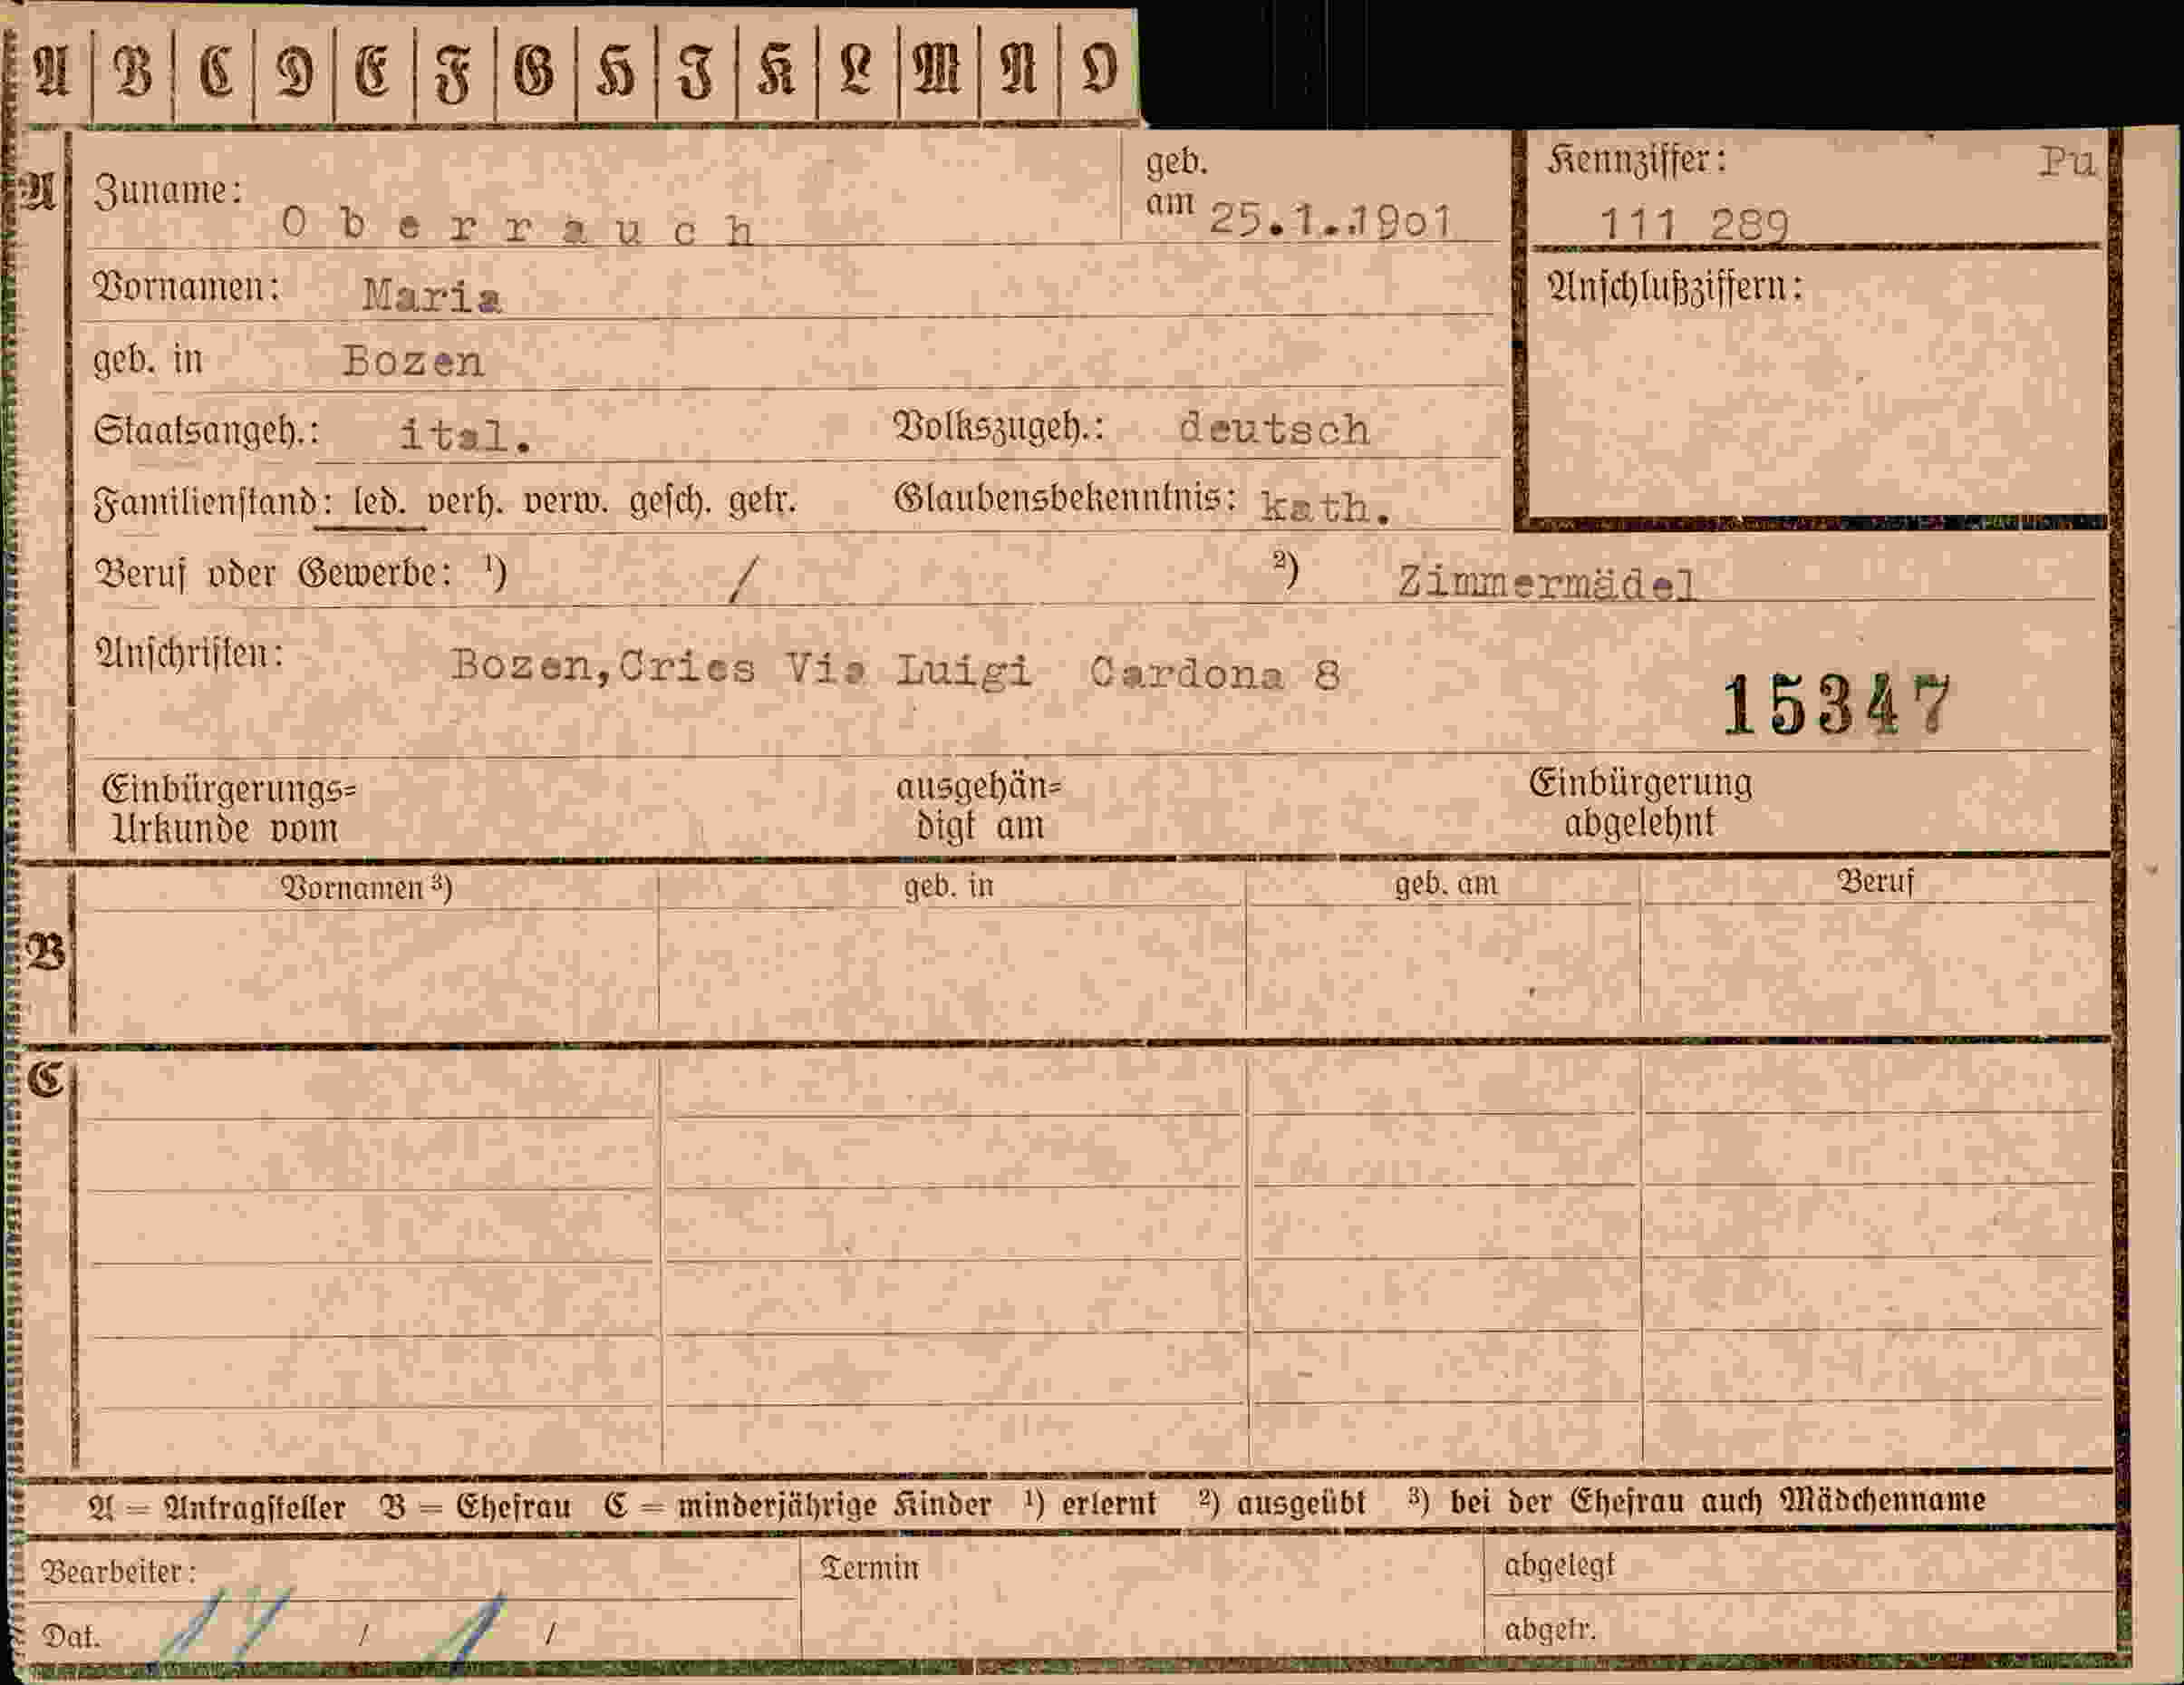 A B C D E F G H I K L M N O
A
Zuname: Oberrauch geb. am 25.1..1901
Kennziffer: Pu
111 289
Vornamen: Maria
Anschlußziffern:
geb. in Bozen
Staatsangeh.: ital. Volkszugeh.: deutsch
Familienstand: led. verh. verw. gesch. getr. Glaubensbekenntnis: kath.
Beruf oder Gewerbe: ¹) / ²) Zimmermädel
Anschriften: Bozen,Cries Via Luigi Cardona 8
15347
Einbürgerungs=
Urkunde vom
ausgehän=
digt am
Einbürgerung
abgelehnt
Vornamen ³) geb. in geb. am Beruf
B
C
A = Antragsteller B = Ehefrau C = minderjährige Kinder ¹) erlernt ²) ausgeübt ³) bei der Ehefrau auch Mädchenname
Bearbeiter: Termin abgelegt
Dat. / / abgetr.